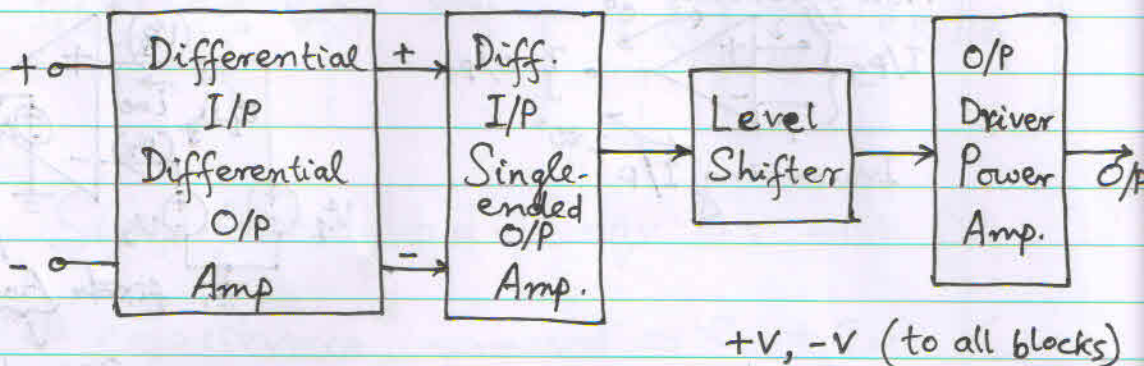 +
-
Differential
I/P
Differential
O/P
Amp
+
-
Diff.
I/P
Single-
ended
O/P
Amp.
Level
Shifter
O/P
Driver
Power
Amp.
O/P
+V, -V (to all blocks)